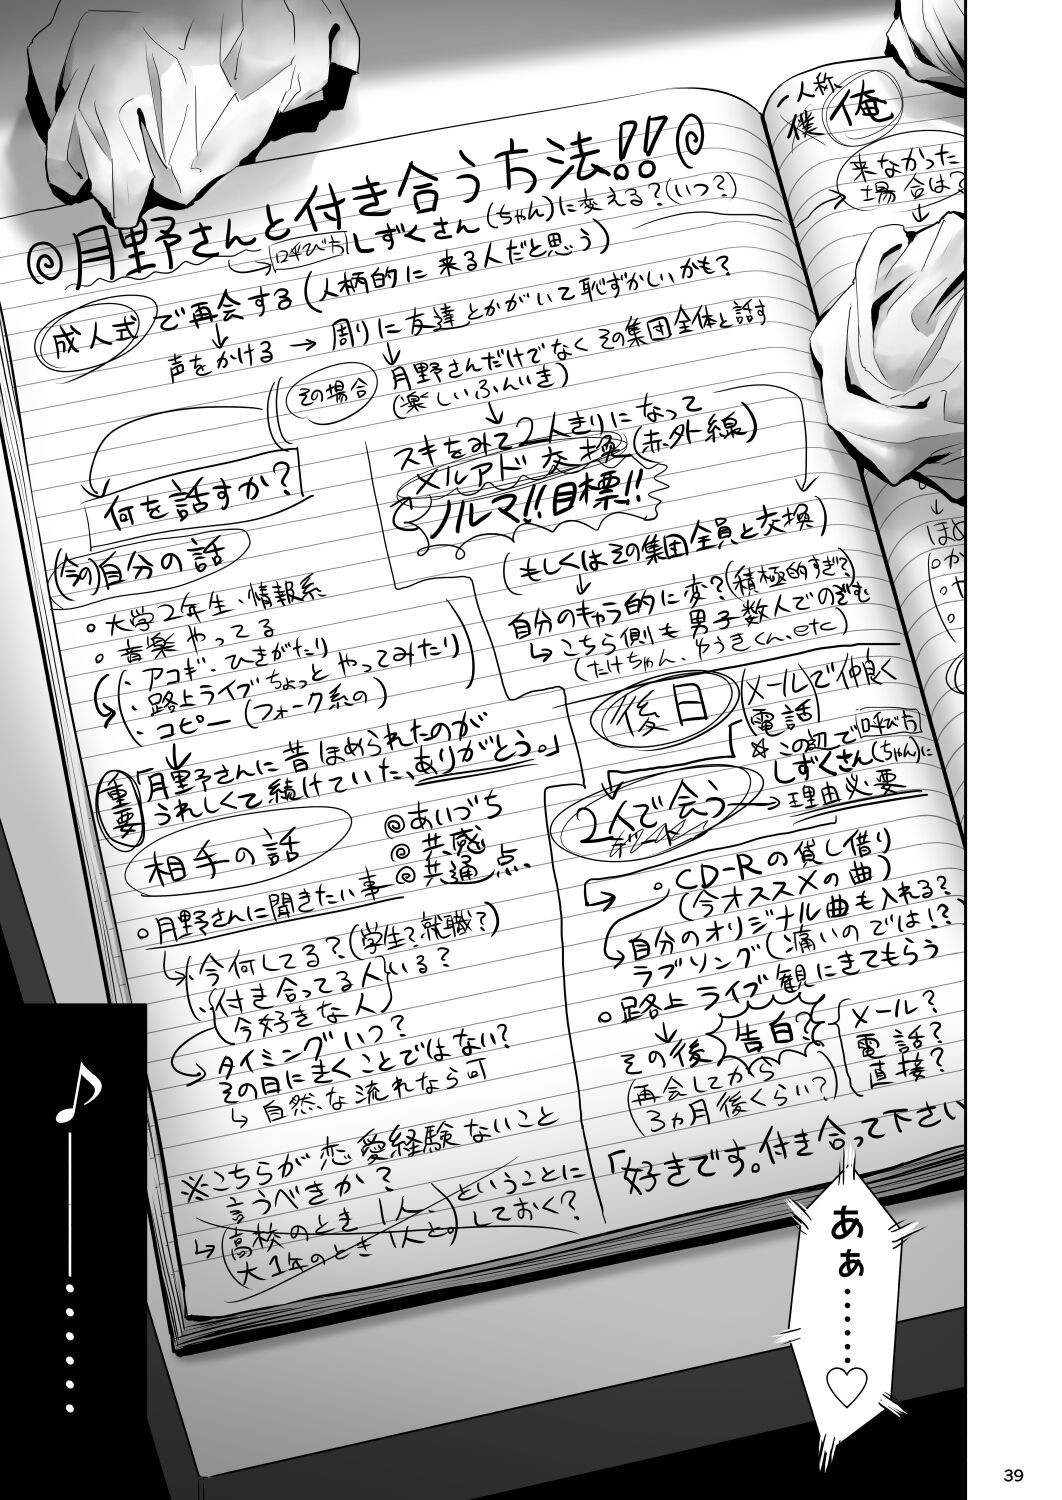 ◎月野さんと付き合う方法!!◎
呼び方 しずくさん(ちゃん)に変える?(いつ?)
成人式で再会する(人柄的に来る人だと思う)
声をかける → 周りに友達とかがいて恥ずかしいかも?
その場合 月野さんだけでなくその集団全体と話す
(楽しいふんいき)
スキをみて2人きりになって
メルアド交換(赤外線)
ノルマ!!目標!!
(もしくはその集団全員と交換)
自分のキャラ的に変?(積極的すぎ?)
こちら側も男子数人でのぞむ
(たけちゃん、ゆうきくん、etc)
何を話すか?
(今の)自分の話
○大学2年生、情報系
○音楽やってる
・アコギ・ひきがたり
・路上ライブちょっとやってみたり
・コピー(フォーク系の)
重要
「月野さんに昔ほめられたのが
うれしくて続けていた、ありがとう。」
相手の話
◎あいづち
◎共感
◎共通点
○月野さんに聞きたい事
・今何してる?(学生?就職?)
・付き合ってる人いる?
(今好きな人)
タイミングいつ?
その日にきくことではない?
自然な流れなら可
※こちらが恋愛経験ないこと
言うべきか?
高校のとき1人、
大1年のとき1人と。
ということに
しておく?
後日
メールで仲良く
電話
☆この辺で呼び方
しずくさん(ちゃん)に
理由必要
2人で会う
デート
○CD-Rの貸し借り
(今オススメの曲)
自分のオリジナル曲も入れる?
ラブソング(痛いのでは!?)
○路上ライブ観にきてもらう
その後 告白?
メール?
電話?
直接?
(再会してから
3ヵ月後くらい?)
「好きです。付き合って下さい
一人称
僕 俺
来なかった
場合は?
♪
―――………
あぁ………♡
39